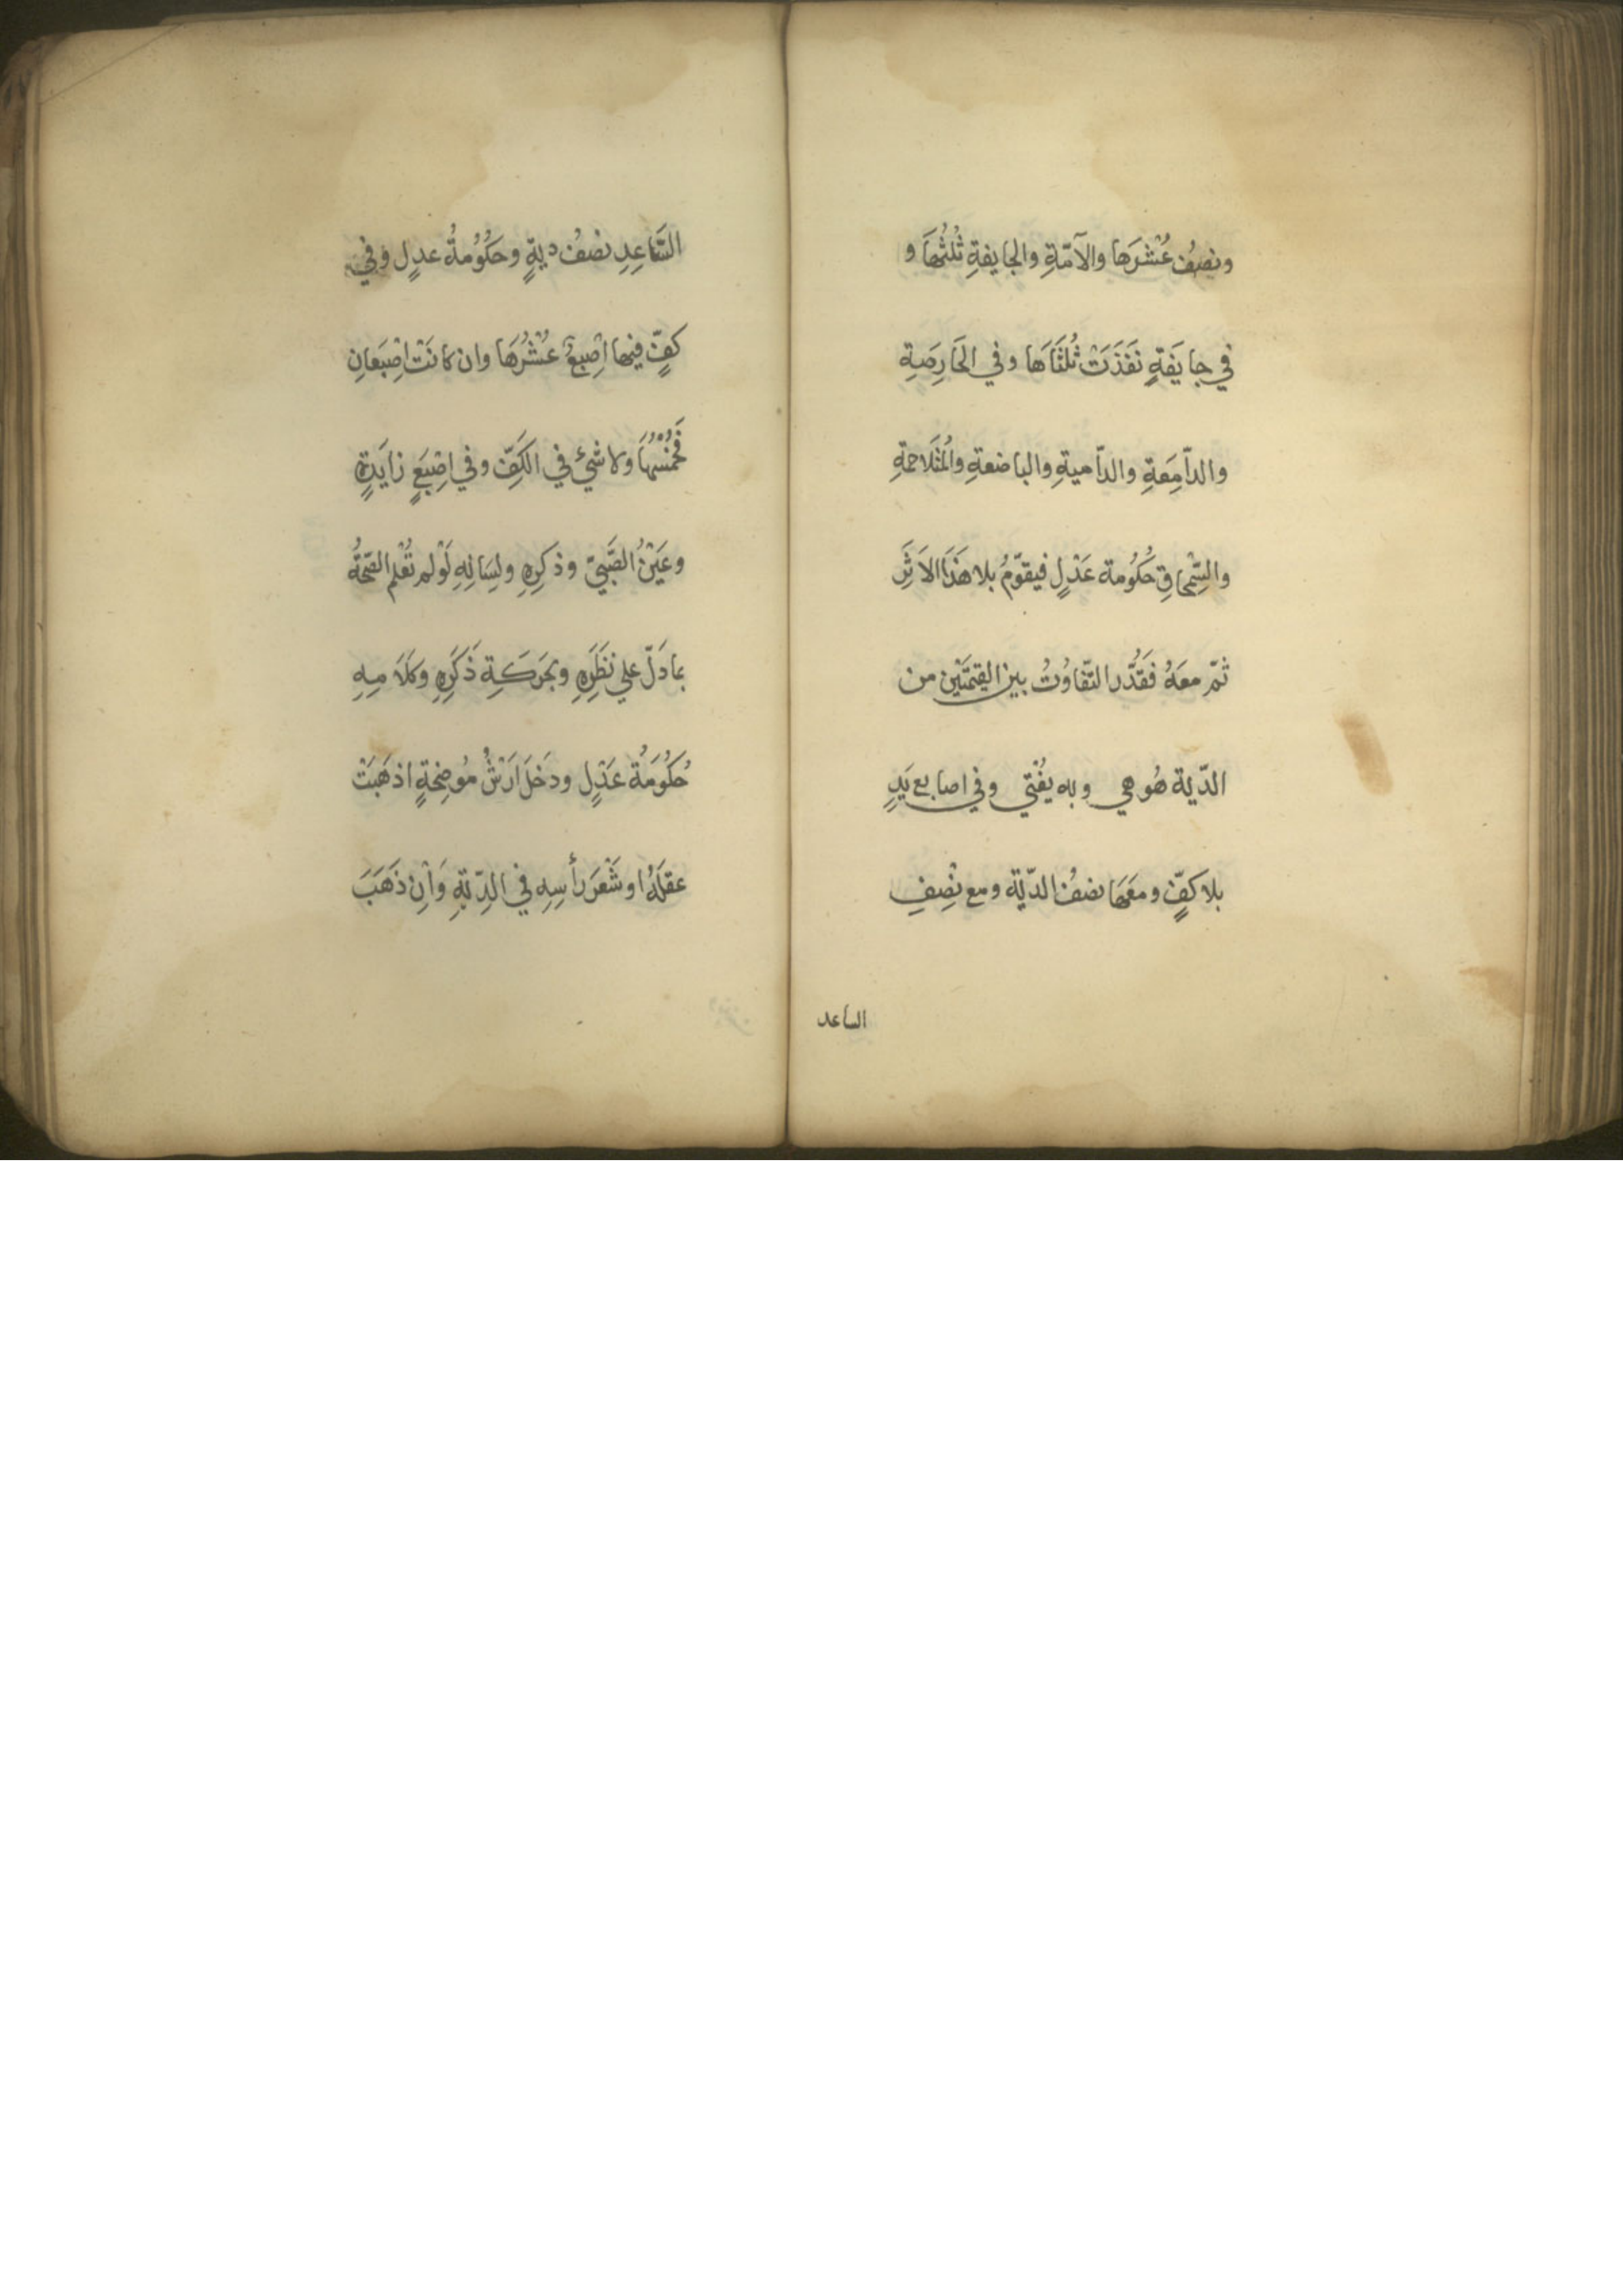 ونصفُ عُشْرَها والآمّةِ والجايفةِ ثُلثُهَا و
في جايَفةٍ نَفَذَتْ ثُلثَاهَا وفي الحَارِصَةِ
والدّامِعَةِ والدّاميةِ والباضعةِ والمُتَلاحمةِ
والسِّمحاقِ حُكُومة عَدْلٍ فيقوّمُ بلا هَذَا الاَثَرِ
ثمّ معَهُ فَقَدُّر التّفاوُتُ بين القِيمَتَيْن من
الدّية هُو هي وبه يُفْتي وفي اصابع يَدٍ
بلا كفٍّ ومعَهَا نصفُ الدّية ومع نِصْفِ
الساعد
السَّاعِدِ نصْفُ ديةٍ وحكُومةُ عدلٍ وفي
كفٍّ فيها اِصْبعٌ عُشْرُهَا وان كانَتْ اِصْبَعانِ
فَخُمْسُهَا ولا شيْئَ في الكَفِّ وفي اِصْبَعٍ زايَدةٍ
وعَيْنُ الصَّبيّ وذكرِهِ ولِسَانِهِ لَوْ لم تُعْلم الصّحّةُ
بما دَلّ علي نَظَرِهِ وبحَرَكَةِ ذَكَرِهِ وكَلَامِهِ
حُكُومَةُ عَدْلٍ ودَخَلَ اَرْشُ مُوضِحَةٍ اذهَبَتْ
عقلَهُ او شَعْرَ رأسِهِ في الدِّيَةِ وَاْنِ ذَهَبَ